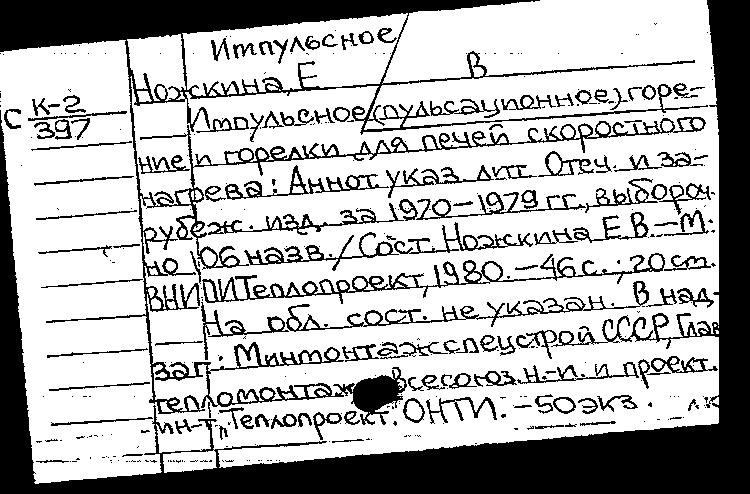 Импульсное
Ножкина, Е В
С К-2
397
Импульсное (пульсационное) горе-
ние и горелки для печей скоростного
нагрева: Аннот. указ. лит. Отеч. и за-
рубеж. изд. за 1970-1979 гг., выбороч.
но 106 назв. / Сост. Ножкина Е.В. - М.:
ВНИПИТеплопроект, 1980. - 46 с.; 20 см.
На обл. сост. не указан. В над-
заг.: Минмонтажспецстрой СССР, Глав
тепломонтаж Всесоюз. н.-и. и проект.
ин-т "Теплопроект. ОНТИ. - 50 экз.